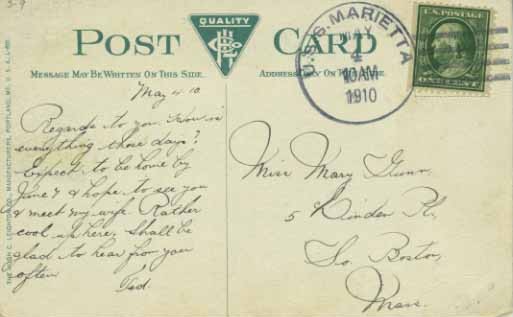 5-9
POST CARD
QUALITY
MESSAGE MAY BE WRITTEN ON THIS SIDE.
ADDRESS ONLY ON THIS SIDE.
U.S.S. MARIETTA
MAY
4
10 AM
1910
U.S. POSTAGE
ONE CENT
THE HUGH C. LEIGHTON CO., MANUFACTURERS, PORTLAND, ME. U.S.A.
May 4 10
Regards to you. How is
everything these days?
Expect to be home by
June 7 & hope to see you
& meet my wife. Rather
cool up here. Shall be
glad to hear from you
often
Ted.
Miss Mary Gunn,
5 Linden Pl,
So. Boston,
Mass.